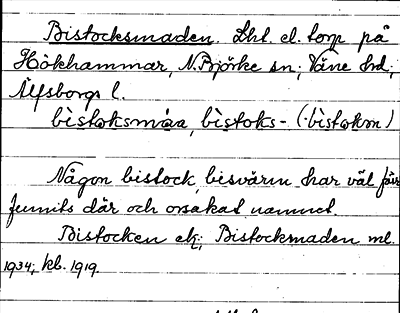 Bistocksmaden. Lht. el. torp på
Hökhammar, N. Björke sn; Väne hd;
Älfsborgs l.
bìstoksmáa, bìstoks- (·bìstokǝn)
Någon bistock, bisvärm har väl förr
funnits där och orsakat namnet.
Bistocken ek; Bistocksmaden ml.
1934; kb. 1919.